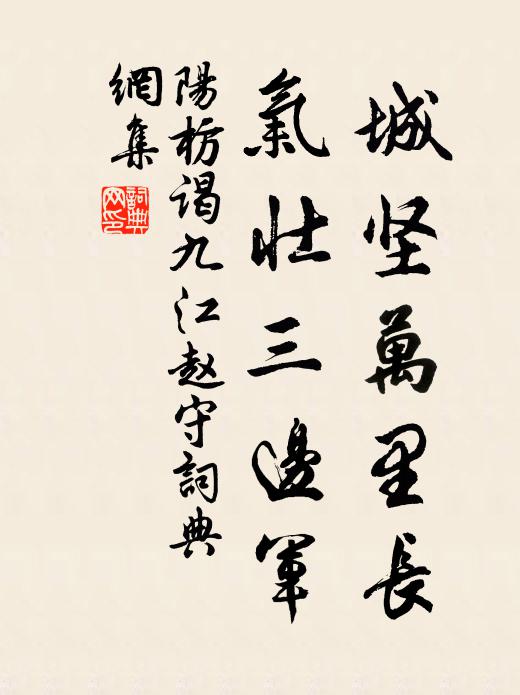 城坚萬里長
氣壮三邊軍
陽枋谒九江赵守詞典
網集
詞典
网印